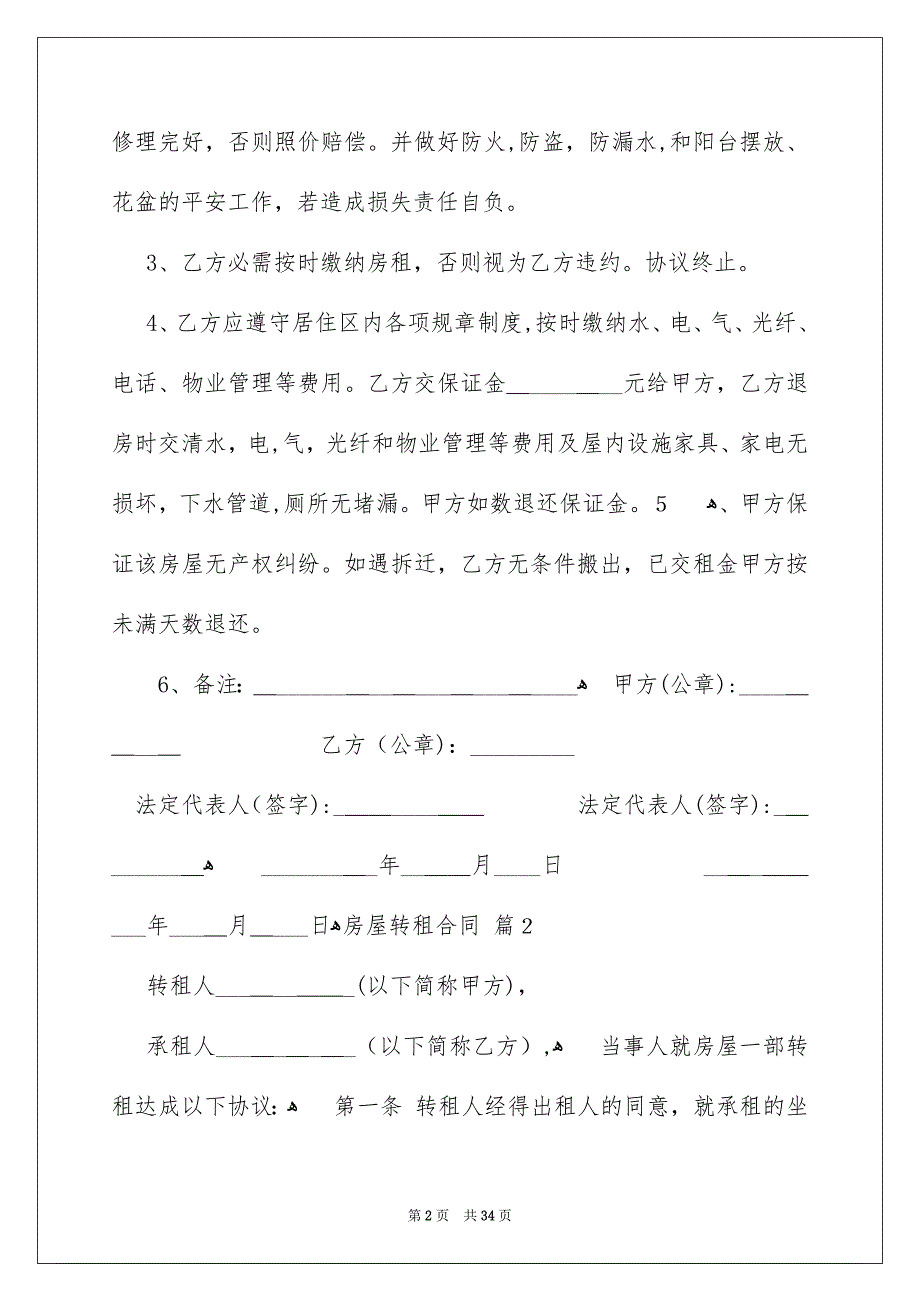 修理完好，否则照价赔偿。并做好防火,防盗，防漏水,和阳台摆放、
花盆的平安工作，若造成损失责任自负。
3、乙方必需按时缴纳房租，否则视为乙方违约。协议终止。
4、乙方应遵守居住区内各项规章制度,按时缴纳水、电、气、光纤、
电话、物业管理等费用。乙方交保证金__________元给甲方，乙方退
房时交清水，电,气，光纤和物业管理等费用及屋内设施家具、家电无
损坏，下水管道,厕所无堵漏。甲方如数退还保证金。５ ﻫ、甲方保
证该房屋无产权纠纷。如遇拆迁，乙方无条件搬出，已交租金甲方按
未满天数退还。
6、备注：____________________________ﻫ 甲方(公章):______
______ 乙方（公章)：_________
法定代表人（签字):_____________ 法定代表人(签字):___
________ﻫ __________年______月____日 _________
___年_____月_____日ﻫ房屋转租合同 篇２
转租人____________(以下简称甲方)，
承租人____________（以下简称乙方）,ﻫ 当事人就房屋一部转
租达成以下协议：ﻫ 第一条 转租人经得出租人的同意，就承租的坐
第 2 页 共 34 页